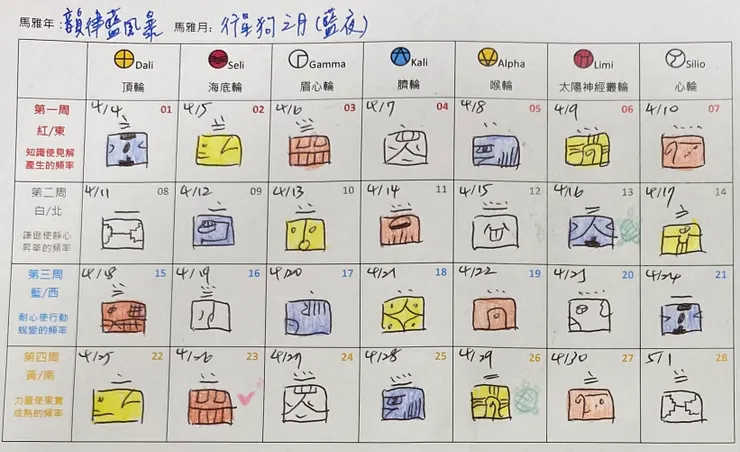 馬雅年：韻律藍風暴 馬雅月：行星狗之月(藍夜)
Dali Seli Gamma Kali Alpha Limi Silio
頂輪 海底輪 眉心輪 臍輪 喉輪 太陽神經叢輪 心輪
第一周 4/4 01 4/5 02 4/6 03 4/7 04 4/8 05 4/9 06 4/10 07
紅/東
知識使見解
產生的頻率
第二周 4/11 08 4/12 09 4/13 10 4/14 11 4/15 12 4/16 13 4/17 14
白/北
謙遜使靜心
昇華的頻率
第三周 4/18 15 4/19 16 4/20 17 4/21 18 4/22 19 4/23 20 4/24 21
藍/西
耐心使行動
蛻變的頻率
第四周 4/25 22 4/26 23 4/27 24 4/28 25 4/29 26 4/30 27 5/1 28
黃/南
力量使果實
成熟的頻率